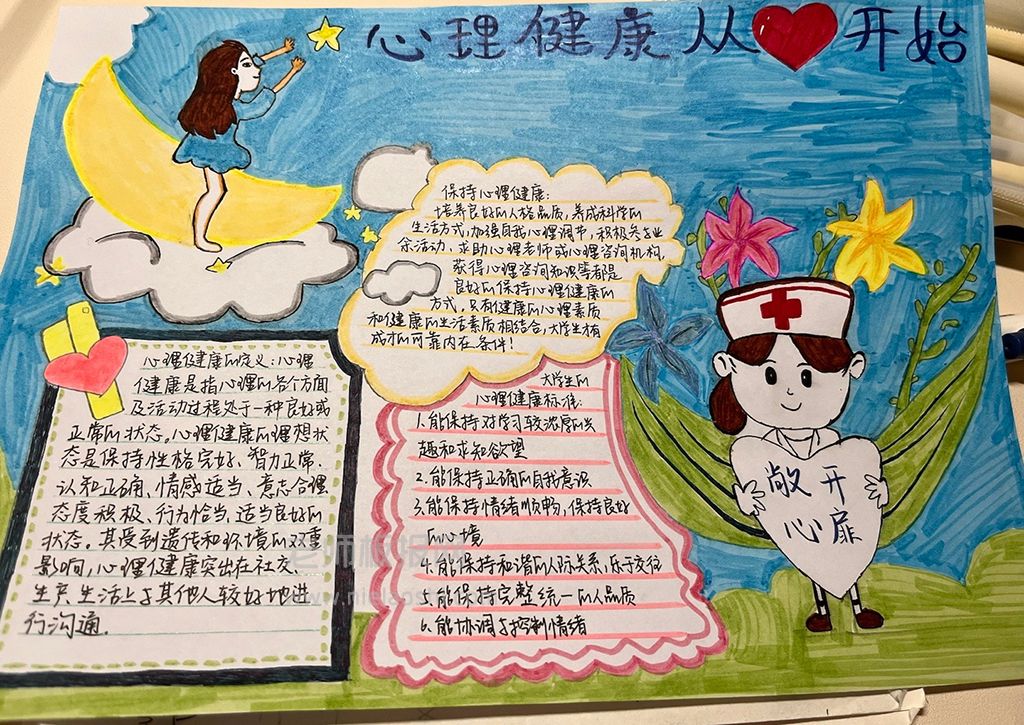 心理健康从开始
保持心理健康:
培养良好的人格品质,养成科学的
生活方式,加强自我心理调节,积极参与业
余活动、求助心理老师或心理咨询机构,
获得心理咨询知识等都是
良好的保持心理健康的
方式,只有健康的心理素质
和健康的生活素质相结合,大学生有
成才的可靠内在条件!
心理健康的定义:心理
健康是指心理的各个方面
及活动过程处于一种良好或
正常的状态。心理健康的理想状
态是保持性格完好、智力正常、
认知正确、情感适当、意志合理
态度积极、行为恰当、适当良好的
状态。其受到遗传和环境的双重
影响,心理健康突出在社交、
生产、生活上与其他人较好地进
行沟通.
大学生的
心理健康标准:
1.能保持对学习较浓厚的兴
趣和求知欲望
2.能保持正确的自我意识
3.能保持情绪顺畅,保持良好
的心境
4.能保持和谐的人际关系,乐于交往
5.能保持完整统一的人品质
6.能协调与控制情绪
敞开
心扉